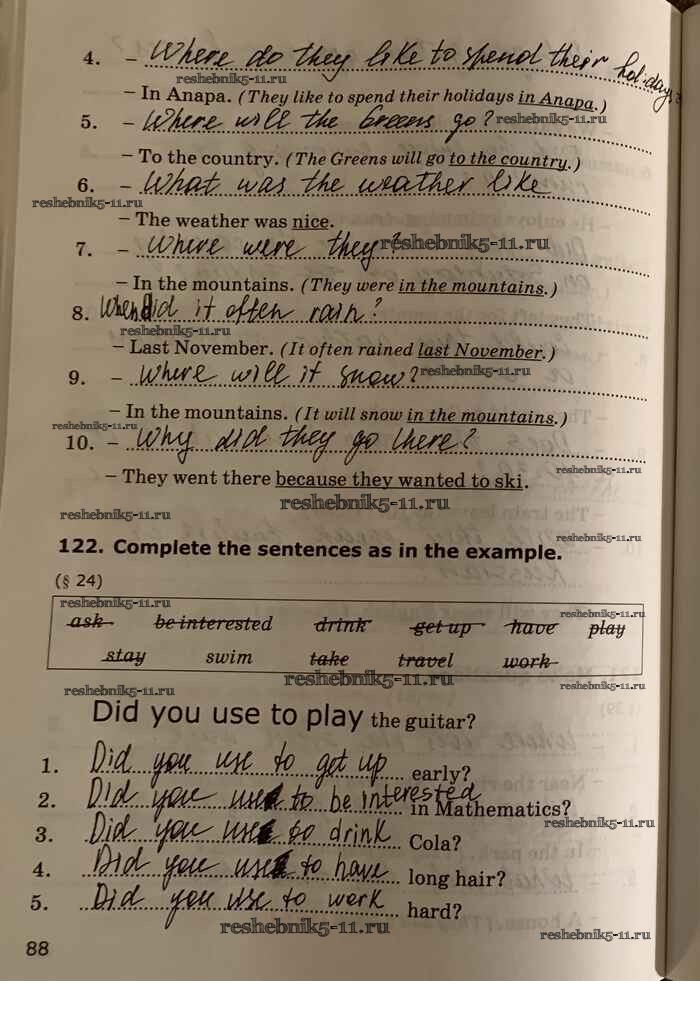 4. – Where do they like to spend their holidays?
reshebnik5-11.ru
– In Anapa. (They like to spend their holidays in Anapa.)
5. – Where will the Greens go? reshebnik5-11.ru
– To the country. (The Greens will go to the country.)
6. – What was the weather like
reshebnik5-11.ru reshebnik5-11.ru
– The weather was nice.
7. – Where were they? reshebnik5-11.ru
– In the mountains. (They were in the mountains.)
8. When did it often rain?
reshebnik5-11.ru
– Last November. (It often rained last November.)
9. – Where will it snow? reshebnik5-11.ru
– In the mountains. (It will snow in the mountains.)
reshebnik5-11.ru
10. – Why did they go there?
– They went there because they wanted to ski. reshebnik5-11.ru
reshebnik5-11.ru reshebnik5-11.ru
122. Complete the sentences as in the example. reshebnik5-11.ru
(§ 24)
reshebnik5-11.ru reshebnik5-11.ru
ask be interested drink get up have play
stay swim take travel work
reshebnik5-11.ru reshebnik5-11.ru reshebnik5-11.ru
Did you use to play the guitar?
1. Did you use to get up early?
2. Did you use to be interested in Mathematics?
reshebnik5-11.ru
3. Did you use to drink Cola?
4. Did you use to have long hair?
5. Did you use to work hard?
reshebnik5-11.ru reshebnik5-11.ru
88